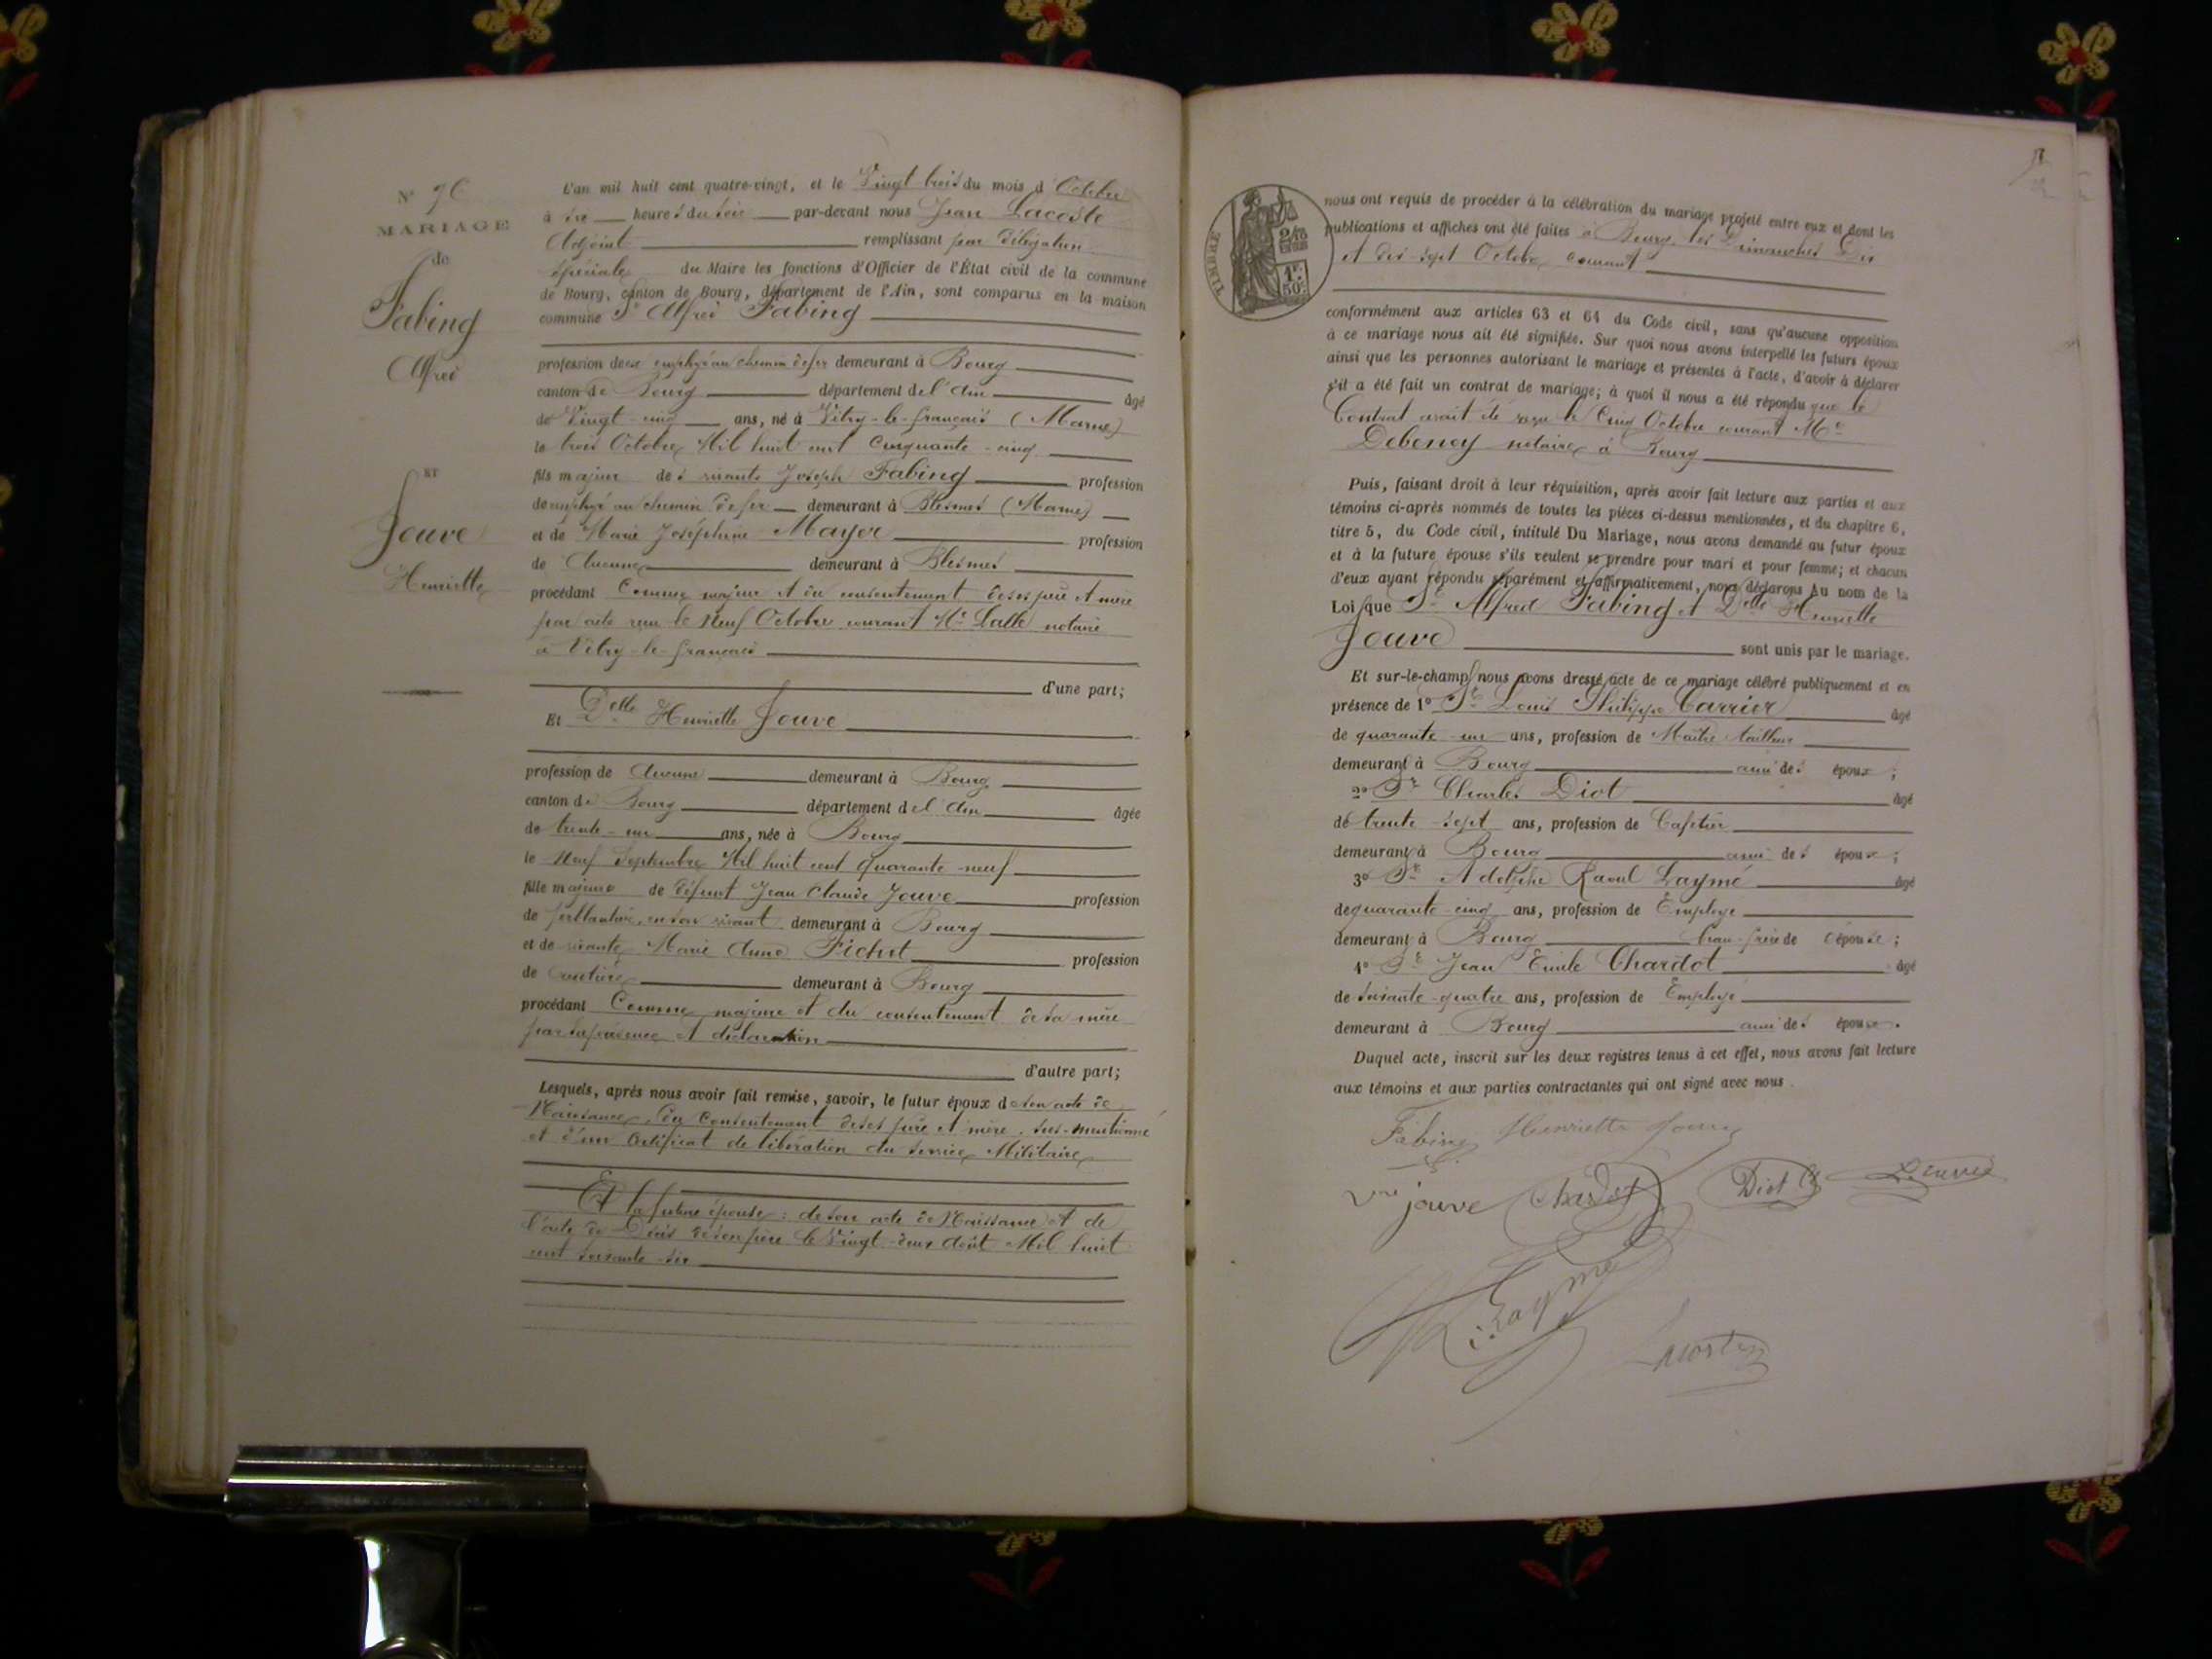 N° 76
MARIAGE
de
Fabing
Alfred
ET
Jouve
Henriette
L'an mil huit cent quatre-vingt, et le Vingt trois du mois d'Octobre
à six heures du soir par-devant nous Jean Lacoste
Adjoint remplissant par délégation
spéciale du Maire les fonctions d'Officier de l'État civil de la commune
de Bourg, canton de Bourg, département de l'Ain, sont comparus en la maison
commune Sr Alfred Fabing
profession de employé au chemin de fer demeurant à Bourg
canton de Bourg département de l'Ain âgé
de Vingt-cinq ans, né à Vitry-le-français (Marne)
le trois Octobre Mil huit cent Cinquante-cinq
fils majeur des vivants Joseph Fabing profession
d'employé au chemin de fer demeurant à Blesmes (Marne)
et de Marie Joséphine Mayer profession
de Aucune demeurant à Blesmes
procédant Comme majeur et du consentement de ses père et mère
par acte reçu le Neuf Octobre courant Me Lalle notaire
à Vitry-le-français
d'une part;
Et Delle Henriette Jouve
profession de Aucune demeurant à Bourg
canton de Bourg département de l'Ain âgée
de trente-un ans, née à Bourg
le Neuf Septembre Mil huit cent quarante-neuf
fille majeure de défunt Jean Claude Jouve profession
de ferblantier, en son vivant demeurant à Bourg
et de vivante Marie Anne Pichet profession
de rentière demeurant à Bourg
procédant Comme majeure et du consentement de sa mère
par sa présence et déclaration
d'autre part;
Lesquels, après nous avoir fait remise, savoir, le futur époux de son acte de
Naissance, du Consentement de ses père et mère sus-mentionné
et d'un Certificat de libération du service Militaire
Et la future épouse: de son acte de Naissance et de
l'acte de Décès de son père le Vingt-deux Août Mil huit
cent soixante-six
TIMBRE
2/10
EN SUS
1F
50C
nous ont requis de procéder à la célébration du mariage projeté entre eux et dont les
publications et affiches ont été faites à Bourg les Dimanches Dix
et dix-sept Octobre courant
conformément aux articles 63 et 64 du Code civil, sans qu'aucune opposition
à ce mariage nous ait été signifiée. Sur quoi nous avons interpellé les futurs époux
ainsi que les personnes autorisant le mariage et présentes à l'acte, d'avoir à déclarer
s'il a été fait un contrat de mariage; à quoi il nous a été répondu que le
Contrat avait été reçu le Cinq Octobre courant Me
Debeney notaire à Bourg
Puis, faisant droit à leur réquisition, après avoir fait lecture aux parties et aux
témoins ci-après nommés de toutes les pièces ci-dessus mentionnées, et du chapitre 6,
titre 5, du Code civil, intitulé Du Mariage, nous avons demandé au futur époux
et à la future épouse s'ils veulent se prendre pour mari et pour femme; et chacun
d'eux ayant répondu séparément et affirmativement, nous déclarons Au nom de la
Loi que Sr Alfred Fabing et Delle Henriette
Jouve sont unis par le mariage.
Et sur-le-champ nous avons dressé acte de ce mariage célébré publiquement et en
présence de 1° Sr Louis Philippe Carrier âgé
de quarante-un ans, profession de Maître tailleur
demeurant à Bourg ami des époux;
2° Sr Charles Diot âgé
de trente-sept ans, profession de Cafetier
demeurant à Bourg ami des époux;
3° Sr Adolphe Raoul Laymé âgé
de quarante-cinq ans, profession de Employé
demeurant à Bourg beau-frère de l'épouse;
4° Sr Jean Emile Chardot âgé
de soixante-quatre ans, profession de Employé
demeurant à Bourg ami des époux.
Duquel acte, inscrit sur les deux registres tenus à cet effet, nous avons fait lecture
aux témoins et aux parties contractantes qui ont signé avec nous.
Fabing Henriette Jouve
Vve jouve Chardot Diot Ch
Laymé
Lacoste